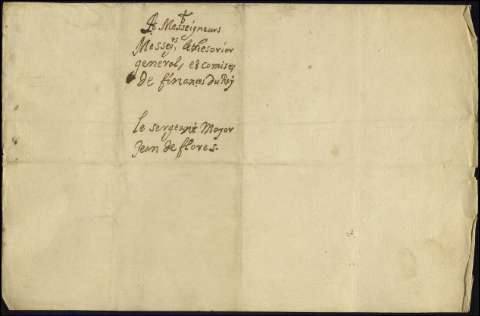 A Messeigneurs
Messrs. le thesorier
general, et comises
De finances du Roy
le sergeant Mayor
Jean de flores.